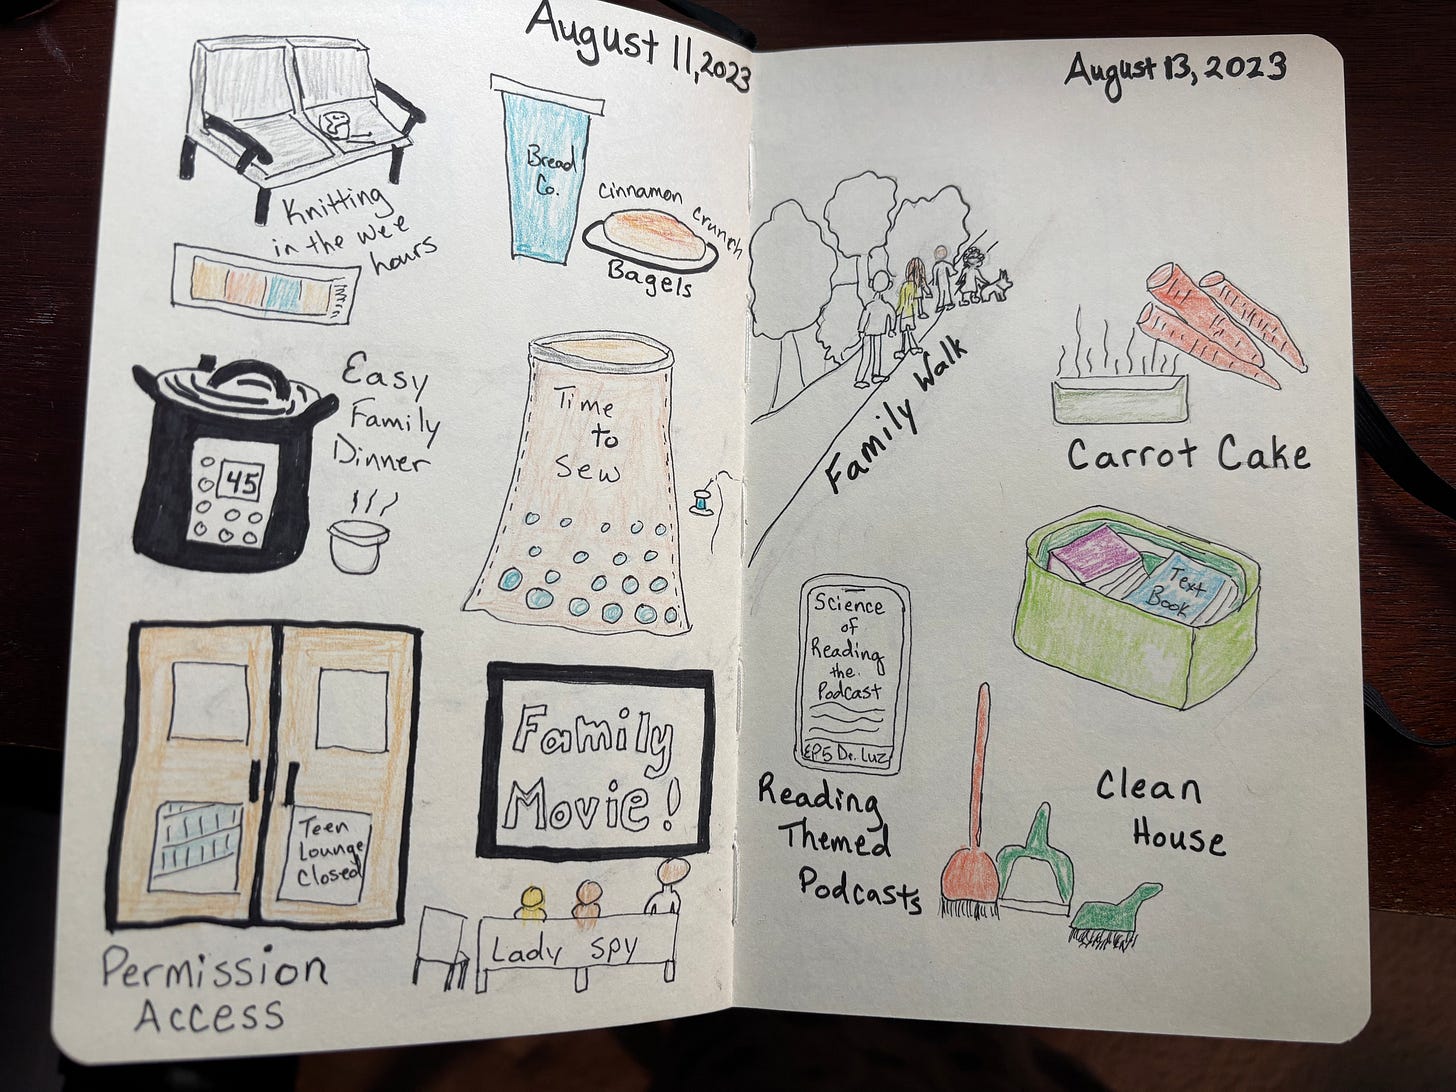 August 11, 2023
Knitting
in the wee
hours
Bread
Co.
cinnamon crunch
Bagels
45
Easy
Family
Dinner
Time
to
Sew
Teen
Lounge
Closed
Permission
Access
Family
Movie!
Lady Spy
August 13, 2023
Family Walk
Carrot Cake
Text
Book
Science
of
Reading
the
Podcast
EP5 Dr. Luz
Reading
Themed
Podcasts
Clean
House